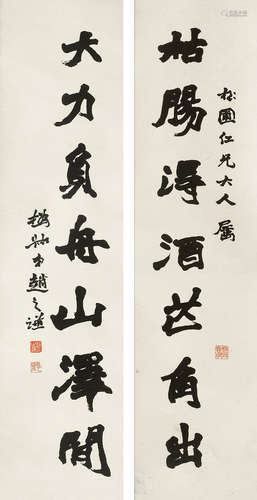 枯腸得酒芒角出
松園仁兄大人屬
大力負舟山澤閒
撝叔弟趙之謙